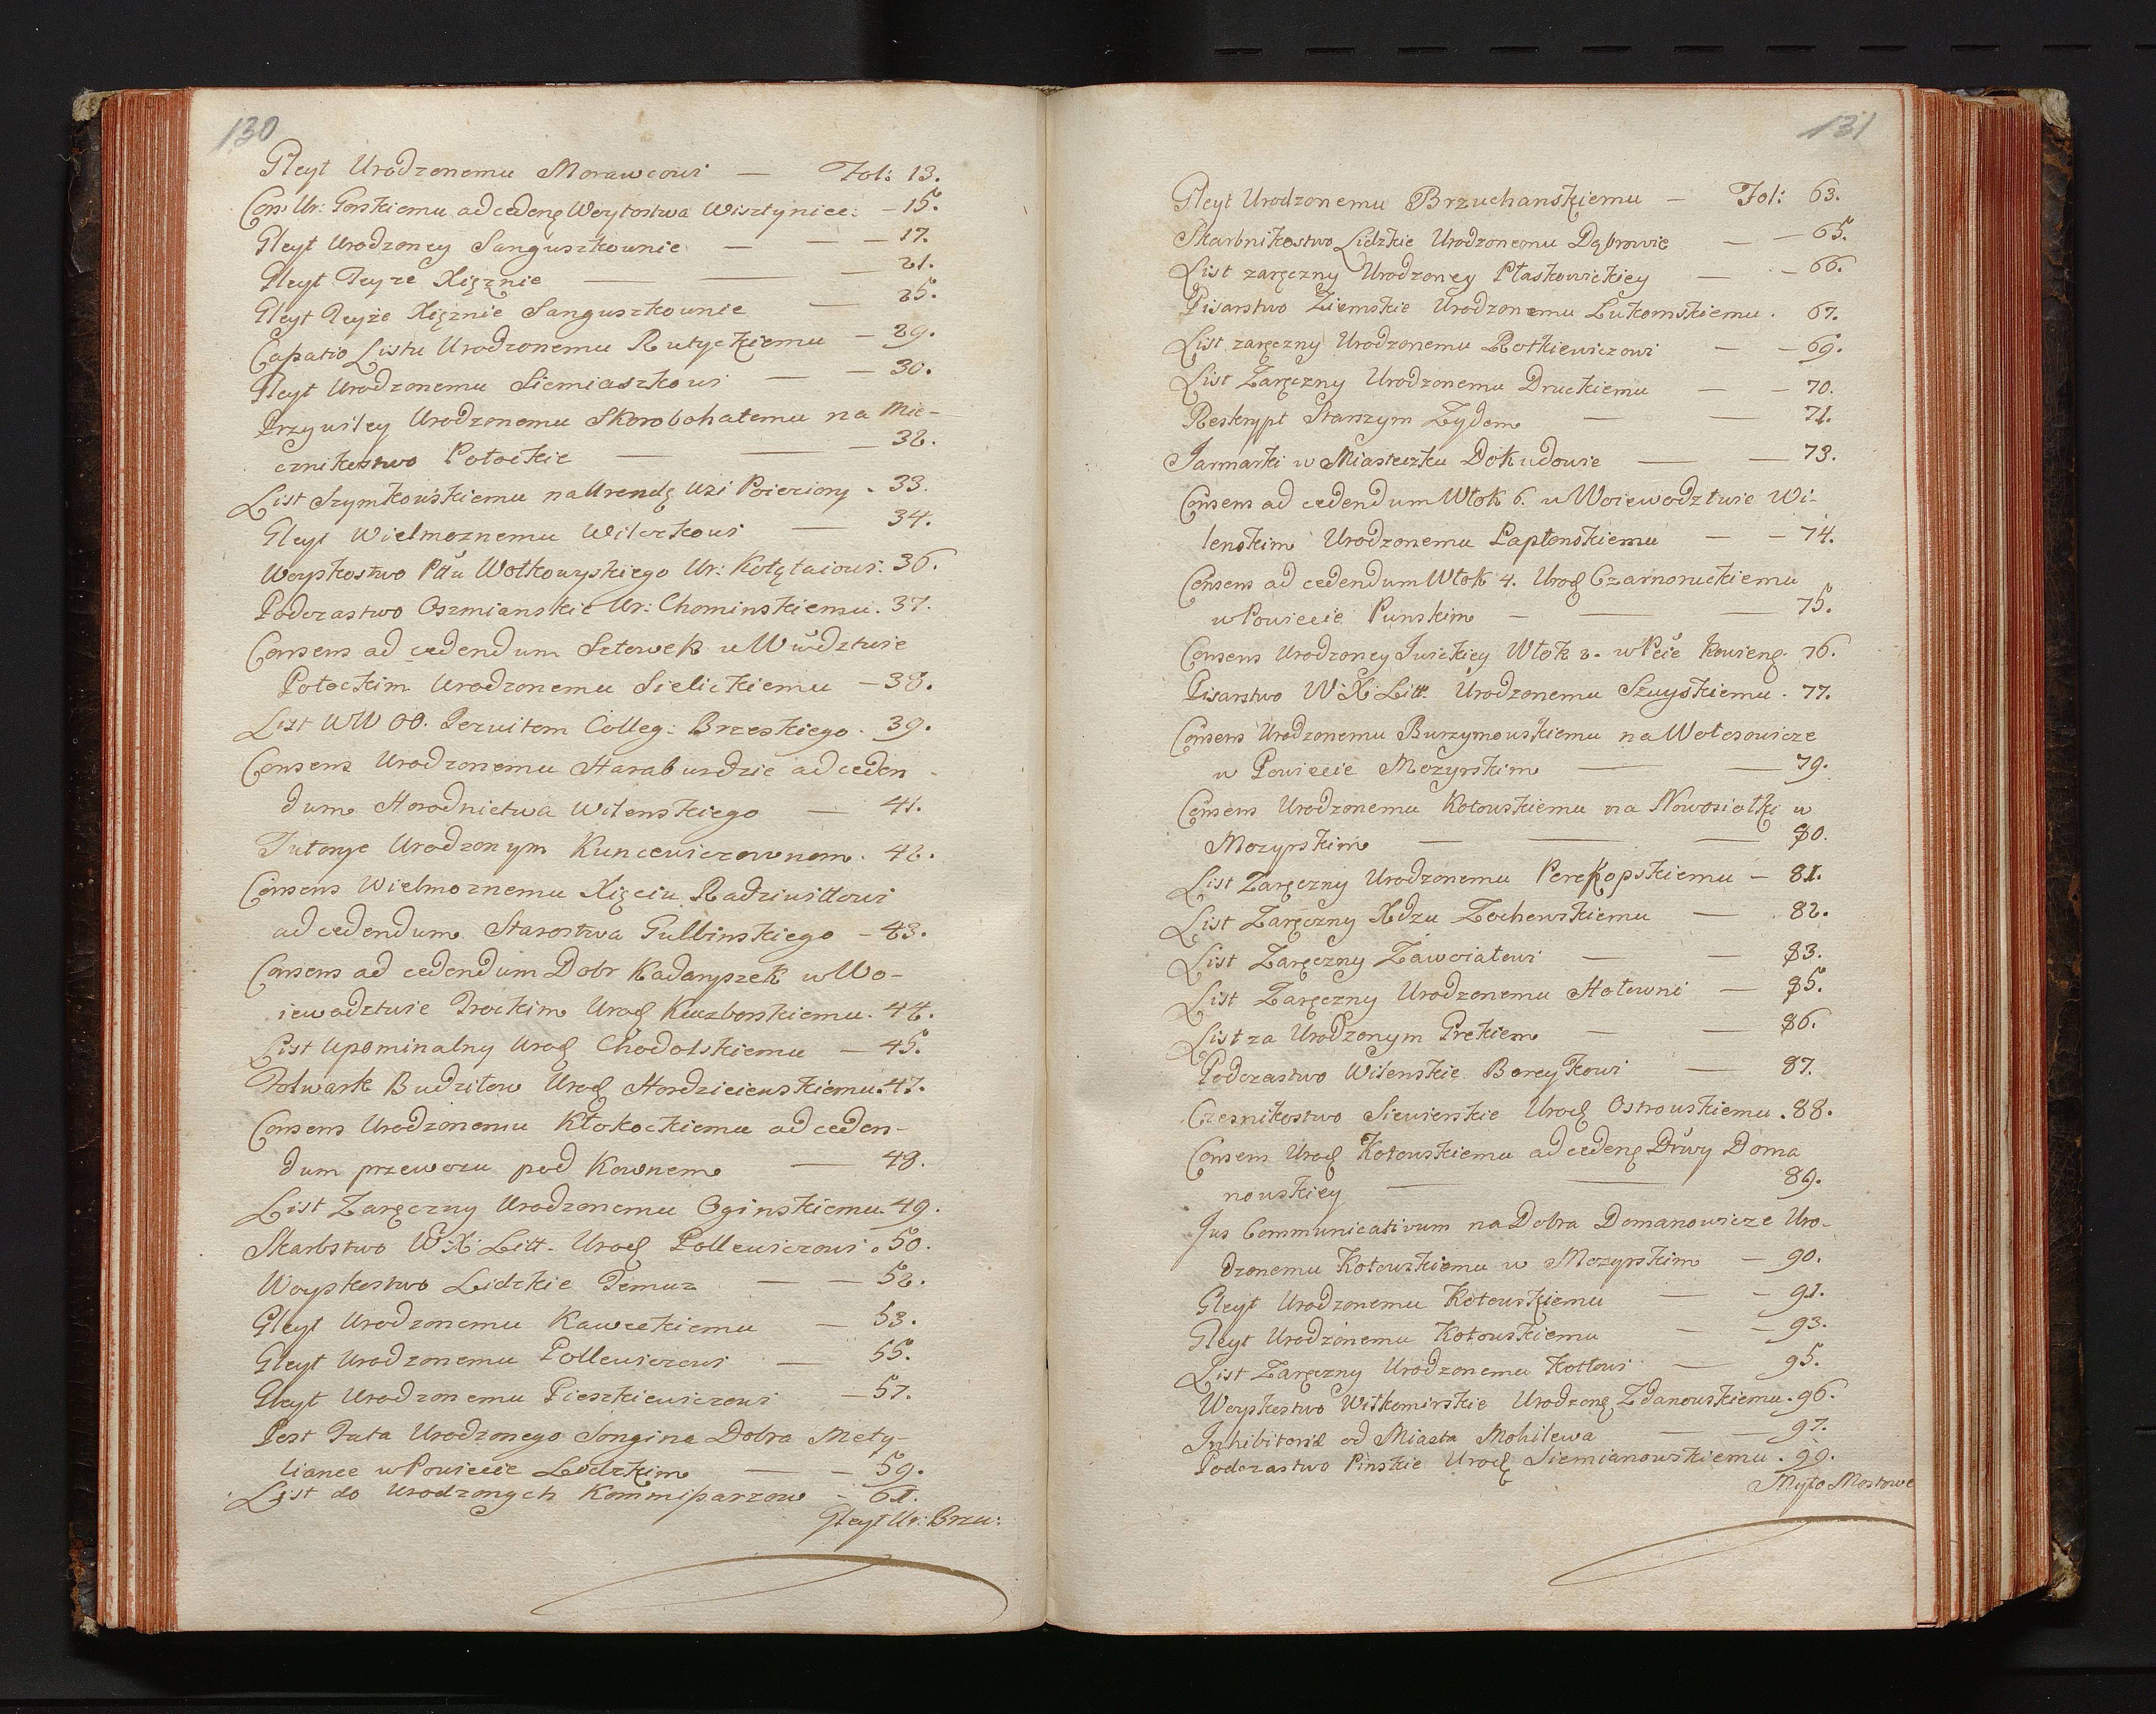 130
Gleyt Urodzonemu Morawcowi — Fol: 13.
Cons: Ur: Gorskiemu ad cedeng Woytostwa Wisztyniec: — 15.
Gleyt Urodzoney Sanguszkownie — — — 17.
Gleyt Teyże Xiężnie — — — 21.
Gleyt Teyże Xiężnie Sanguszkownie — 25.
Capatio Listu Urodzonemu Rutyckiemu — 29.
Gleyt Urodzonemu Siemiaszkowi — — 30.
Przywiley Urodzonemu Skorobohatemu na Mie-
cznikostwo Połockie — — — 32.
List Szymkowskiemu na Arendę Wsi Poieziory . 33.
Gleyt Wielmoznemu Wilczkowi — 34.
Woyskostwo Pttu Wołkowyskiego Ur: Kołłątaiowi: 36.
Podczastwo Oszmianskie Ur: Chominskiemu . 37.
Consens ad cedendum Sztowek w Wwdztwie
Połockim Urodzonemu Sielickiemu — 38.
List WW OO. Jezuitom Colleg: Brzeskiego . 39.
Consens Urodzonemu Haraburdzie ad ceden-
dum Horodnictwa Wilenskiego — 41.
Tutorye Urodzonym Kuncewiczownom . 42.
Consens Wielmoznemu Xięciu Radziwiłłowi
ad cedendum Starostwa Gulbinskiego — 43.
Consens ad cedendum Dobr Kadaryszek w Wo-
iewodztwie Trockim Urodz Kuczborskiemu . 44.
List upominalny Urodz Chodolskiemu — 45.
Folwark Budziłow Urodz Hordzieiewskiemu . 47.
Consens Urodzonemu Kłokockiemu ad ceden-
dum przewozu pod Kownem — 48.
List Zaręczny Urodzonemu Oginskiemu . 49.
Skarbstwo W: X: Litt. Urodz Pollewiczowi . 50.
Woyskostwo Lidzkie Temuz — — 52.
Gleyt Urodzonemu Kaweckiemu — 53.
Gleyt Urodzonemu Pollewiczowi — 55.
Gleyt Urodzonemu Pieszkiewiczowi — 57.
Post Fata Urodzonego Songina Dobra Mety-
liance w Powiecie Lidzkim — — 59.
List do Urodzonych Kommissarzow — 61.
Gleyt Ur: Brzu:
131
Gleyt Urodzonemu Brzuchanskiemu — Fol: 63.
Skarbnikostwo Lidzkie Urodzonemu Dąbrowie — — 65.
List zaręczny Urodzoney Płaskowickiey — — 66.
Pisarstwo Ziemskie Urodzonemu Łukomskiemu . 67.
List zaręczny Urodzonemu Rotkiewiczowi — — 69.
List Zaręczny Urodzonemu Druckiemu — — 70.
Reskrypt Starszym Zydom — — 71.
Jarmarki w Miasteczku Dokudowie — — 73.
Consens ad cedendum Włok 6. w Woiewodztwie Wi-
lenskim Urodzonemu Łaptonskiemu — — 74.
Consens ad cedendum Włok 4. Urodz Czarnoruckiemu
w Powiecie Punskim — — — 75.
Consens Urodzoney Jurickiey Włok 2. w Pcie Kowieng 76.
Pisarstwo W: X: Litt. Urodzonemu Szuyskiemu . 77.
Consens Urodzonemu Burzymowskiemu na Wołosowicze
w Powiecie Mozyrskim — — 79.
Consens Urodzonemu Kotowskiemu na Nowosiołki w
Mozyrskim — — — 80.
List Zaręczny Urodzonemu Perekopskiemu — 81.
List Zaręczny Xdzu Zochowskiemu — 82.
List Zaręczny Zawciałowi — — 83.
List Zaręczny Urodzonemu Hołowni — 85.
List za Urodzonym Prekiem — — 86.
Podczastwo Wilenskie Boreykowi — 87.
Czesnikostwo Siewierskie Urodz Ostrowskiemu . 88.
Consens Urodz Kotowskiemu ad cedeng Dzwy Doma
nowskiey — — 89.
Jus Communicativum na Dobra Domanowicze Uro-
dzonemu Kotowskiemu w Mozyrskim — 90.
Gleyt Urodzonemu Kotowskiemu — — 91.
Gleyt Urodzonemu Kotowskiemu — — 93.
List Zaręczny Urodzonemu Kotłowi — 95.
Woyskostwo Wiłkomirskie Urodzong Zdanowskiemu . 96.
Inhibitoria od Miasta Mohilewa — — 97.
Podczastwo Pinskie Urodz Siemianowskiemu . 99.
Myto Mostowe